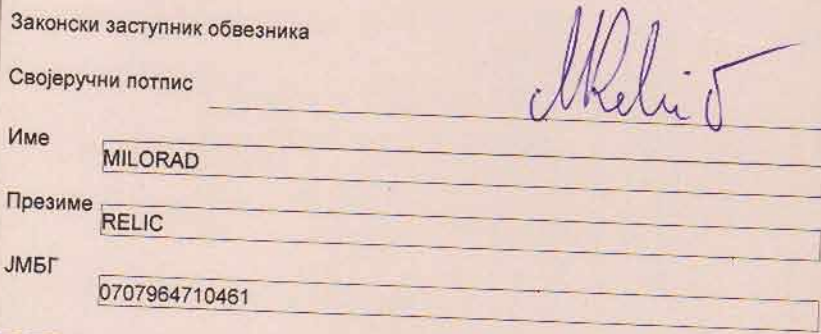 Законски заступник обвезника
Својеручни потпис
Име
MILORAD
Презиме
RELIC
ЈМБГ
0707964710461